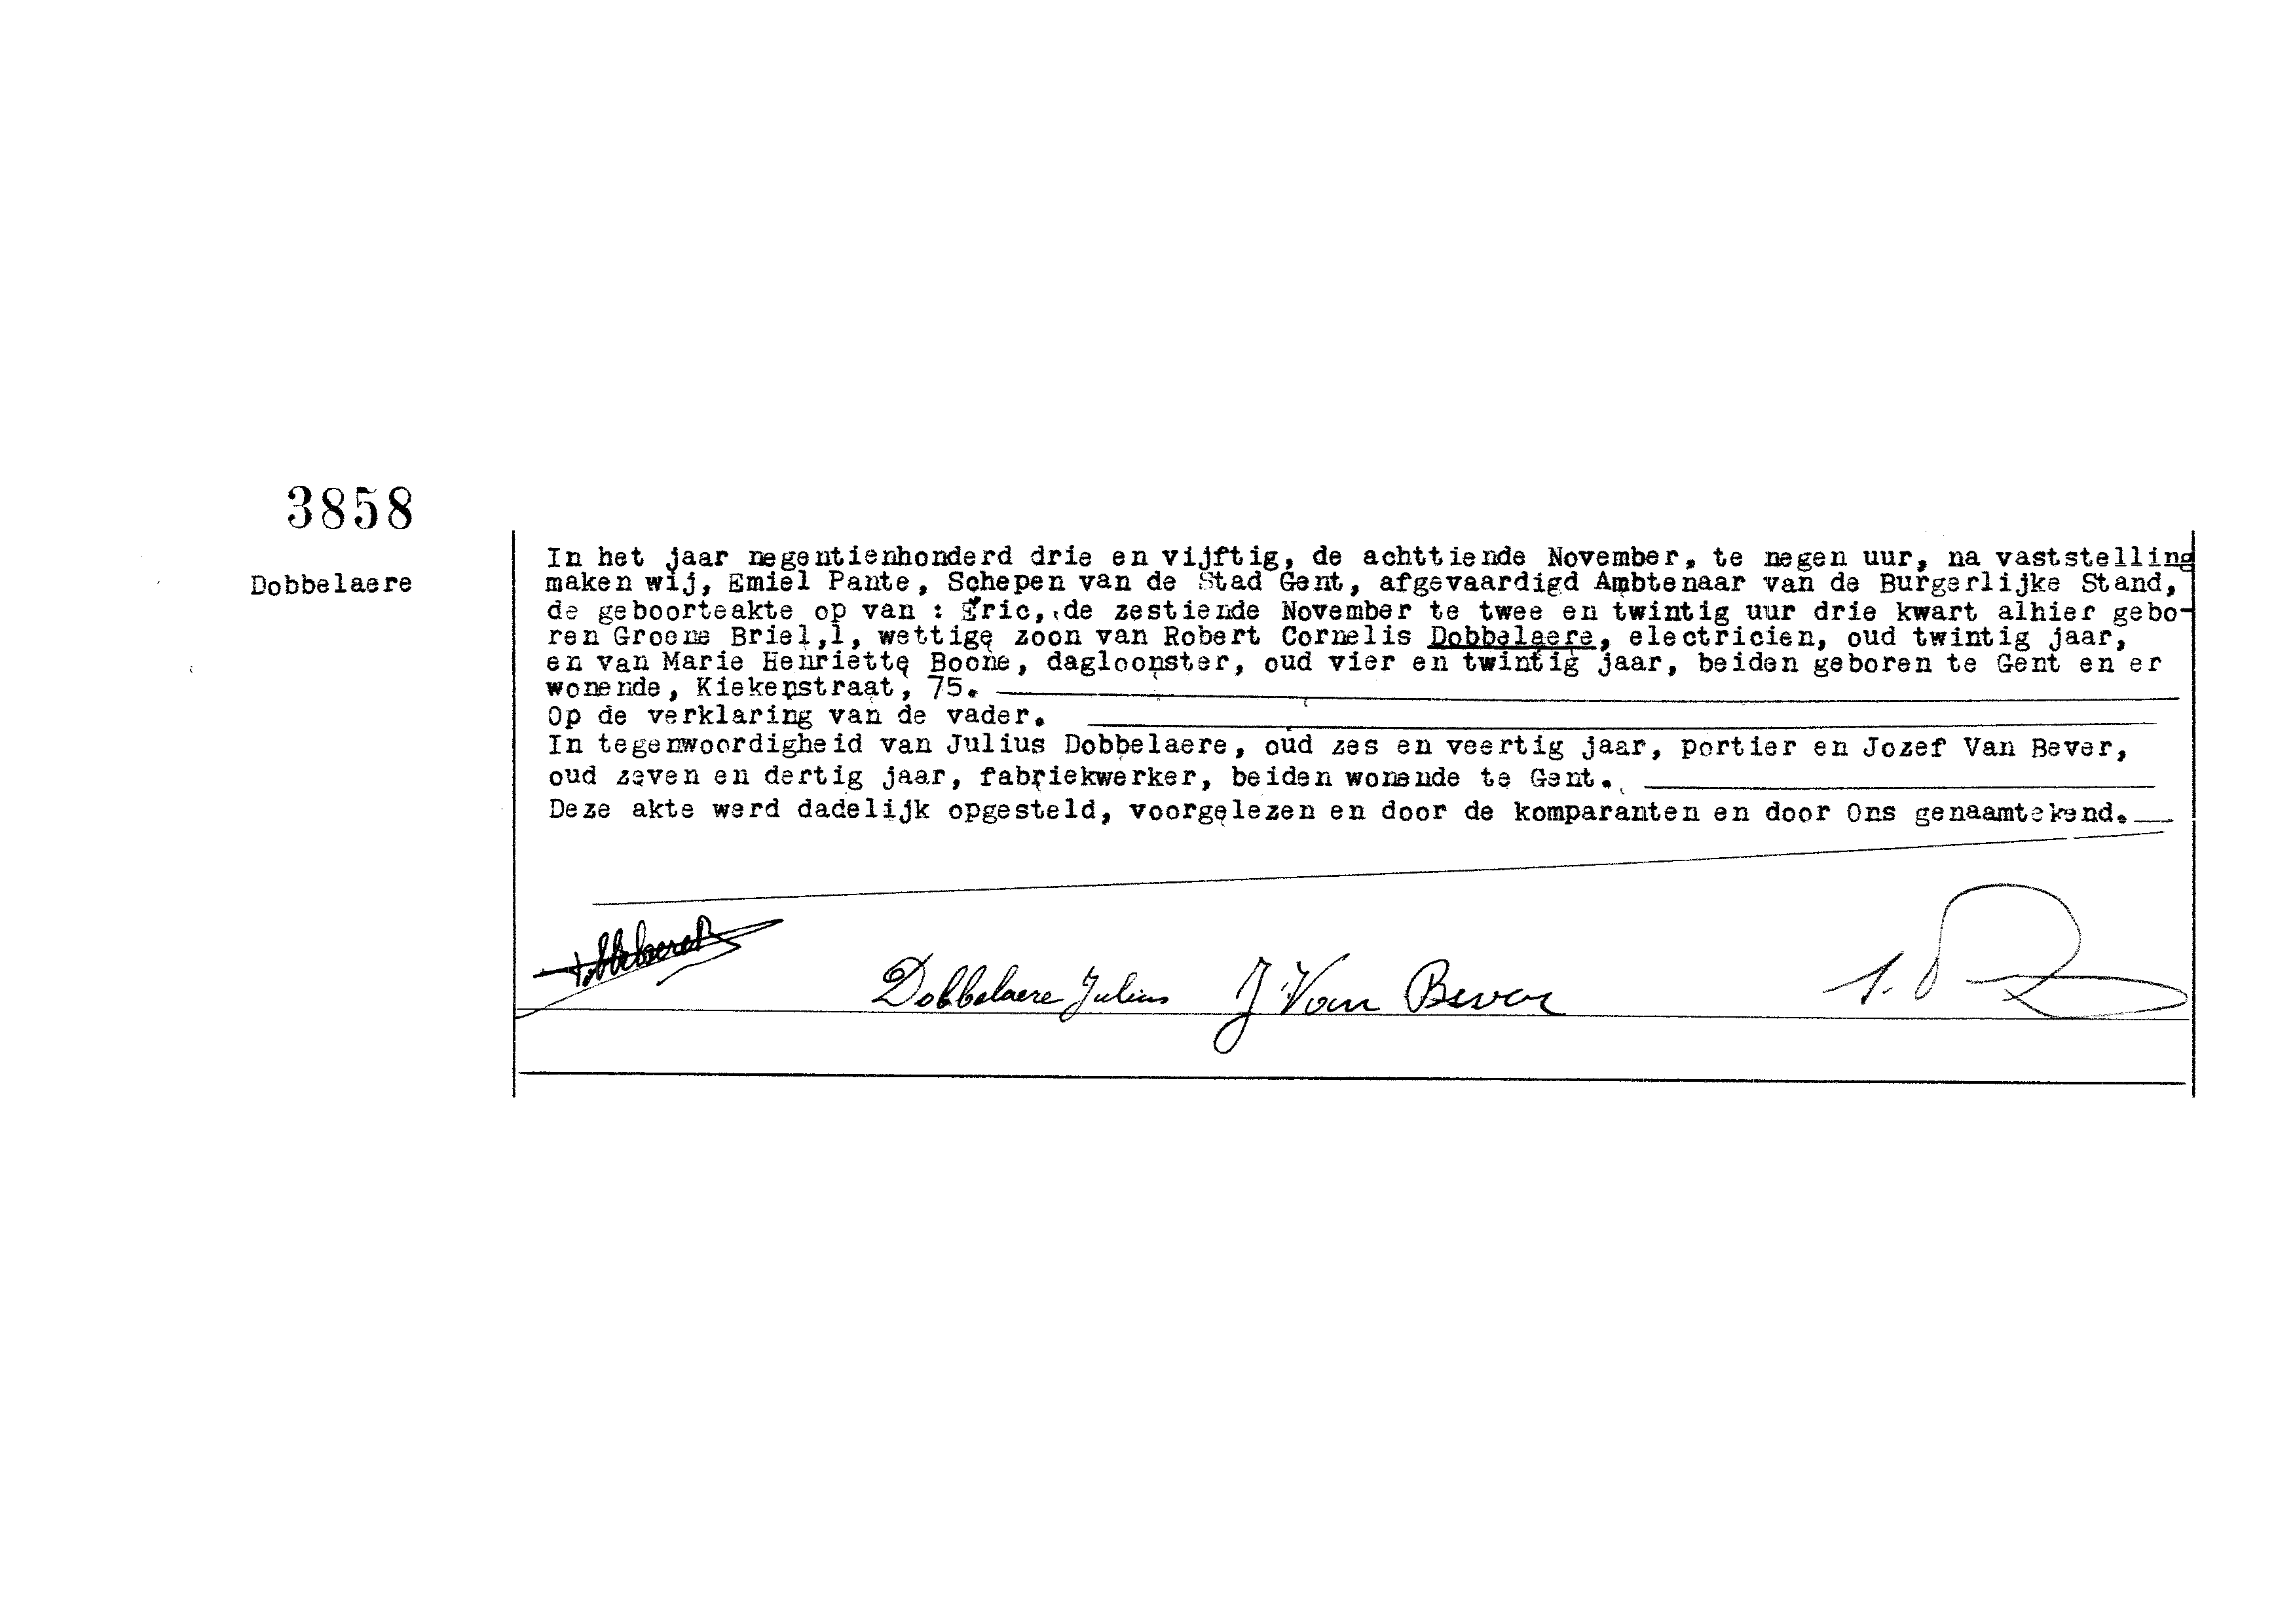 3858
Dobbelaere
In het jaar negentienhonderd drie en vijftig, de achttiende November, te negen uur, na vaststelling
maken wij, Emiel Pante, Schepen van de Stad Gent, afgevaardigd Ambtenaar van de Burgerlijke Stand,
de geboorteakte op van : Eric, de zestiende November te twee en twintig uur drie kwart alhier gebo-
ren Groene Briel,1, wettige zoon van Robert Cornelis Dobbelaere, electricien, oud twintig jaar,
en van Marie Henriette Boone, dagloonster, oud vier en twintig jaar, beiden geboren te Gent en er
wonende, Kiekenstraat, 75.
Op de verklaring van de vader.
In tegenwoordigheid van Julius Dobbelaere, oud zes en veertig jaar, portier en Jozef Van Bever,
oud zeven en dertig jaar, fabriekwerker, beiden wonende te Gent.
Deze akte werd dadelijk opgesteld, voorgelezen en door de komparanten en door Ons genaamtekend.
Dobbelaere Julius J Van Bever